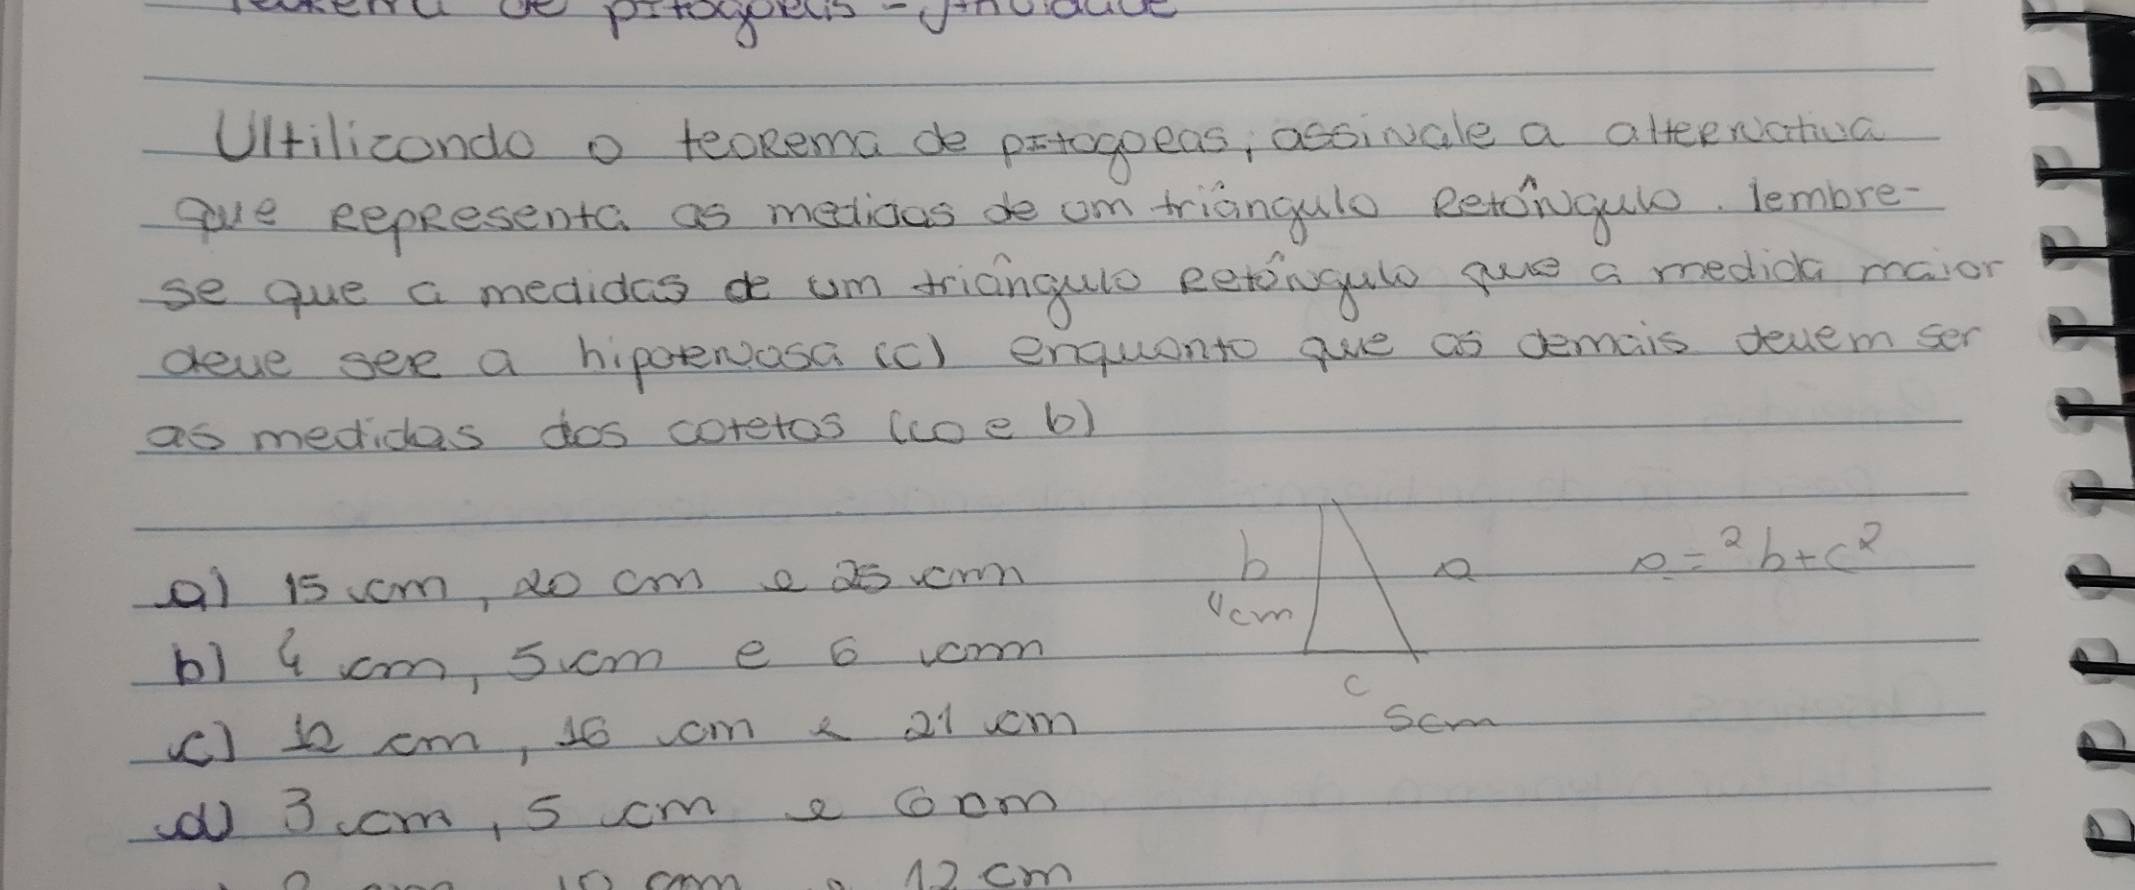 de pitagoras - Atividade
Ultilizando o teorema de pitagoras, assinale a alternativa
que representa as medidas de um triângulo retângulo. lembre-
se que a medidas de um triângulo retângulo que a medida maior
deve ser a hipotenosa (c) enquanto que as demais devem ser
as medidas dos catetos (co e b)
a) 15 cm, 20 cm e 25 cm
b) 4 cm, 5 cm e 6 cm
c) 12 cm, 16 cm e 21 cm
d) 3 cm, 5 cm e 6 cm
10 cm e 12 cm
b a a=²b+c²
4cm
c
5cm